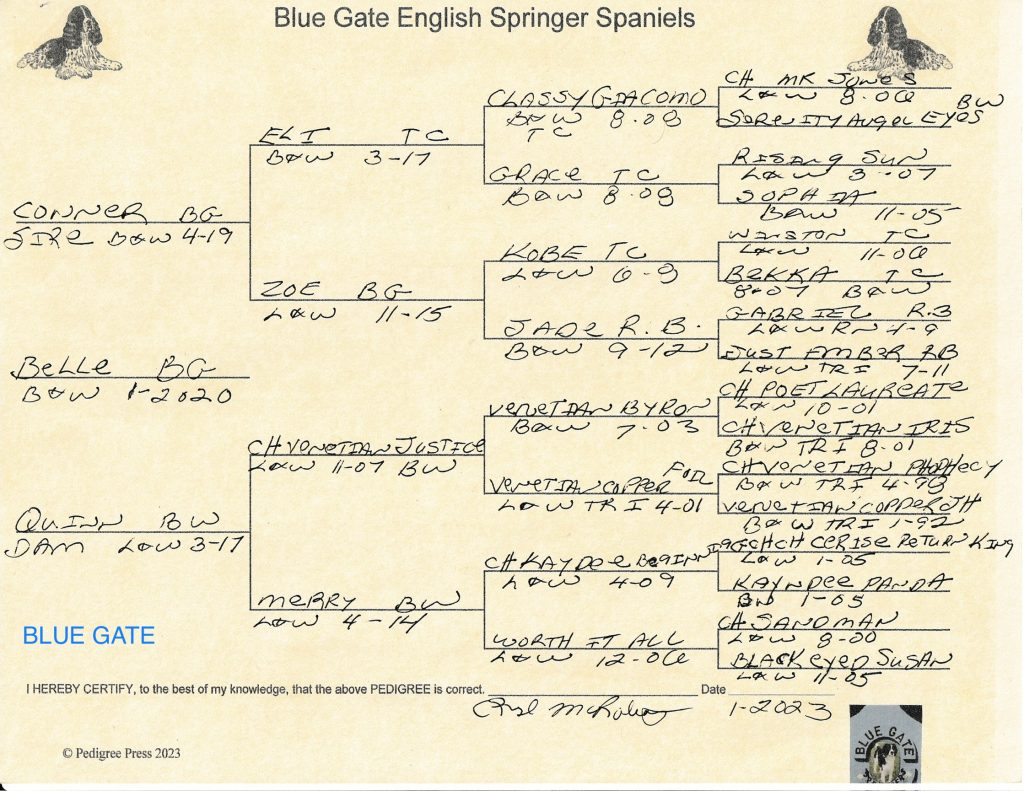 Blue Gate English Springer Spaniels
CONNER BG
SIRE B&W 4-19
BELLE BG
B&W 1-2020
QUINN BW
DAM L&W 3-17
ELI TC
B&W 3-17
ZOE BG
L&W 11-15
CH VENETIAN JUSTICE
L&W 11-07 BW
MERRY BW
L&W 4-14
CLASSY GIACOMO
B&W 8-08
TC
GRACE TC
B&W 8-08
KOBE TC
L&W 6-9
JADE R.B.
B&W 9-12
VENETIAN BYRON
B&W 7-03
VENETIAN COPPER FOIL
L&W TRI 4-01
CH KAYDEE
L&W 4-09
WORTH IT ALL
L&W 12-06
CH MR JONES
L&W 8-06 BW
SERENITY ANGEL EYES
RISING SUN
L&W 3-07
SOPHIA
B&W 11-05
WINSTON TC
L&W 11-06
BEKKA TC
8-07 B&W
GABRIEL R.B
L&W RN 4-9
JUST EMBER RB
L&W TRI 7-11
CH POET LAUREATE
L&W 10-01
CH VENETIAN IRIS
B&W TRI 8-01
CH VENETIAN PHOPHECY
B&W TRI
VENETIAN COPPER JH
B&W TRI 1-92
CERISE RETURN KING
L&W 1-05
KAYNDEE PANDA
1-05
CH SANDMAN
L&W 8-00
BLACK EYED SUSAN
L&W 11-05
BLUE GATE
I HEREBY CERTIFY, to the best of my knowledge, that the above PEDIGREE is correct.
Date
1-2023
© Pedigree Press 2023
BLUE GATE